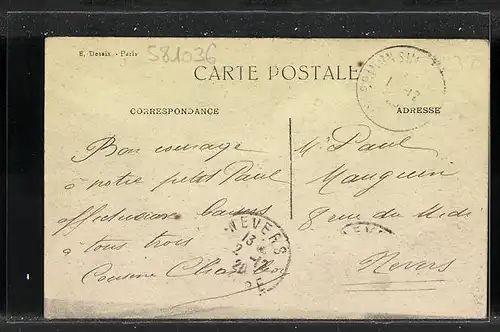 E. Desaix. - Paris
581036
CARTE POSTALE
CORRESPONDANCE
ADRESSE
Bon courage
à notre petit Paul
affectueux baisers
à tous trois
Cousine
Mr Paul
Mauguin
8 rue du Midi
Nevers
NEVERS
13